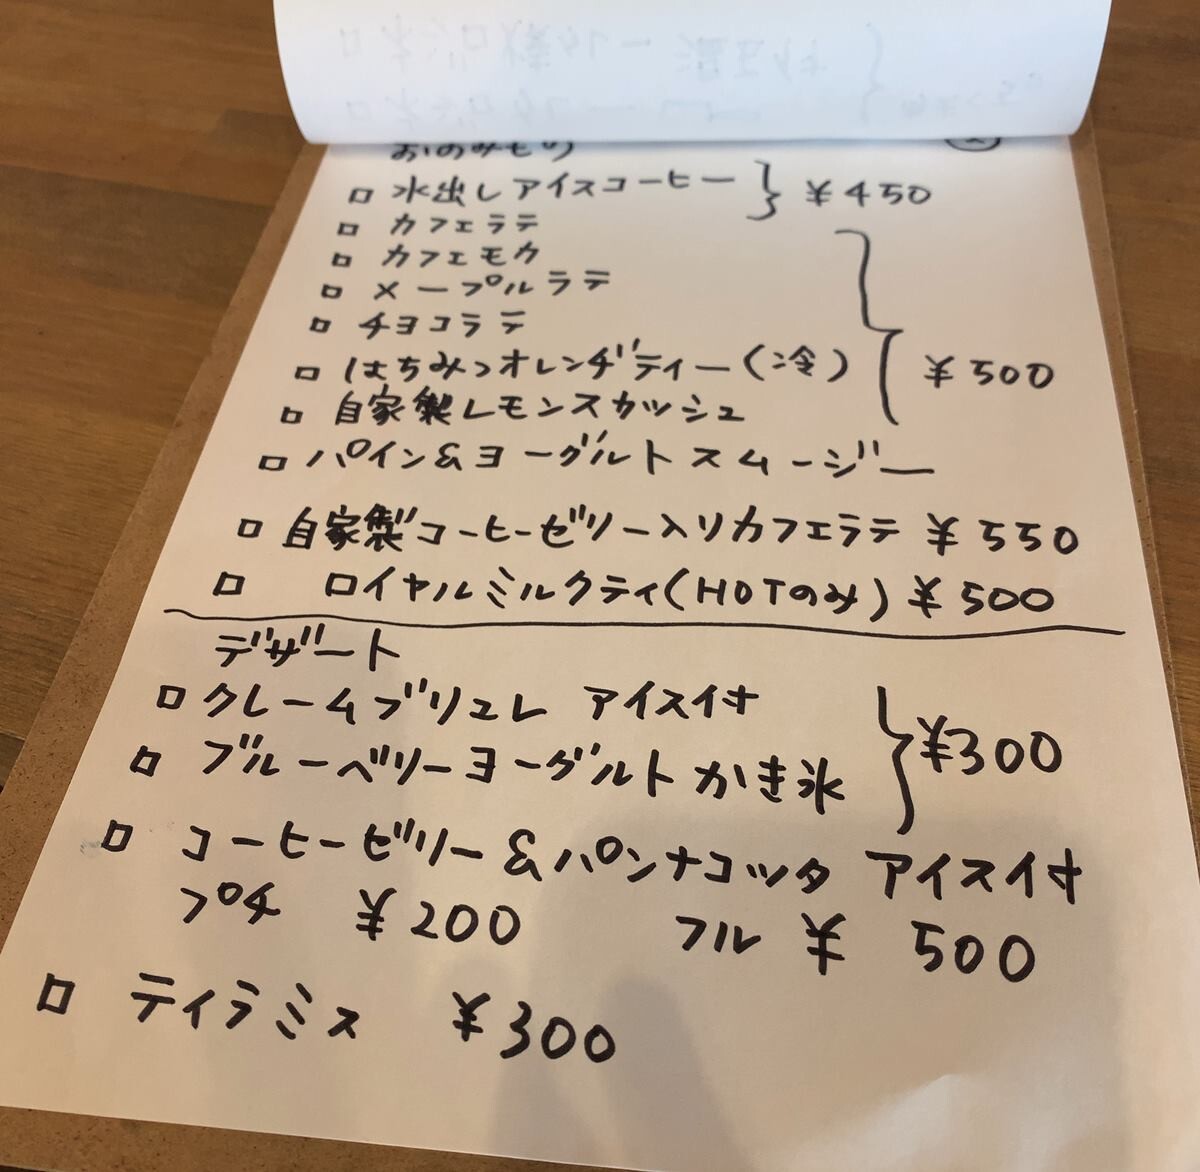 おのみもの
□ 水出しアイスコーヒー } ¥450
□ カフェラテ
□ カフェモカ
□ メープルラテ
□ チョコラテ
□ はちみつオレンヂティー(冷) } ¥500
□ 自家製レモンスカッシュ
□ パイン&ヨーグルトスムージー
□ 自家製コーヒーゼリー入りカフェラテ ¥550
□ ロイヤルミルクティ(HOTのみ) ¥500
デザート
□ クレームブリュレ アイス付
□ ブルーベリーヨーグルトかき氷 } ¥300
□ コーヒーゼリー&パンナコッタ アイス付
プチ ¥200 フル ¥500
□ ティラミス ¥300